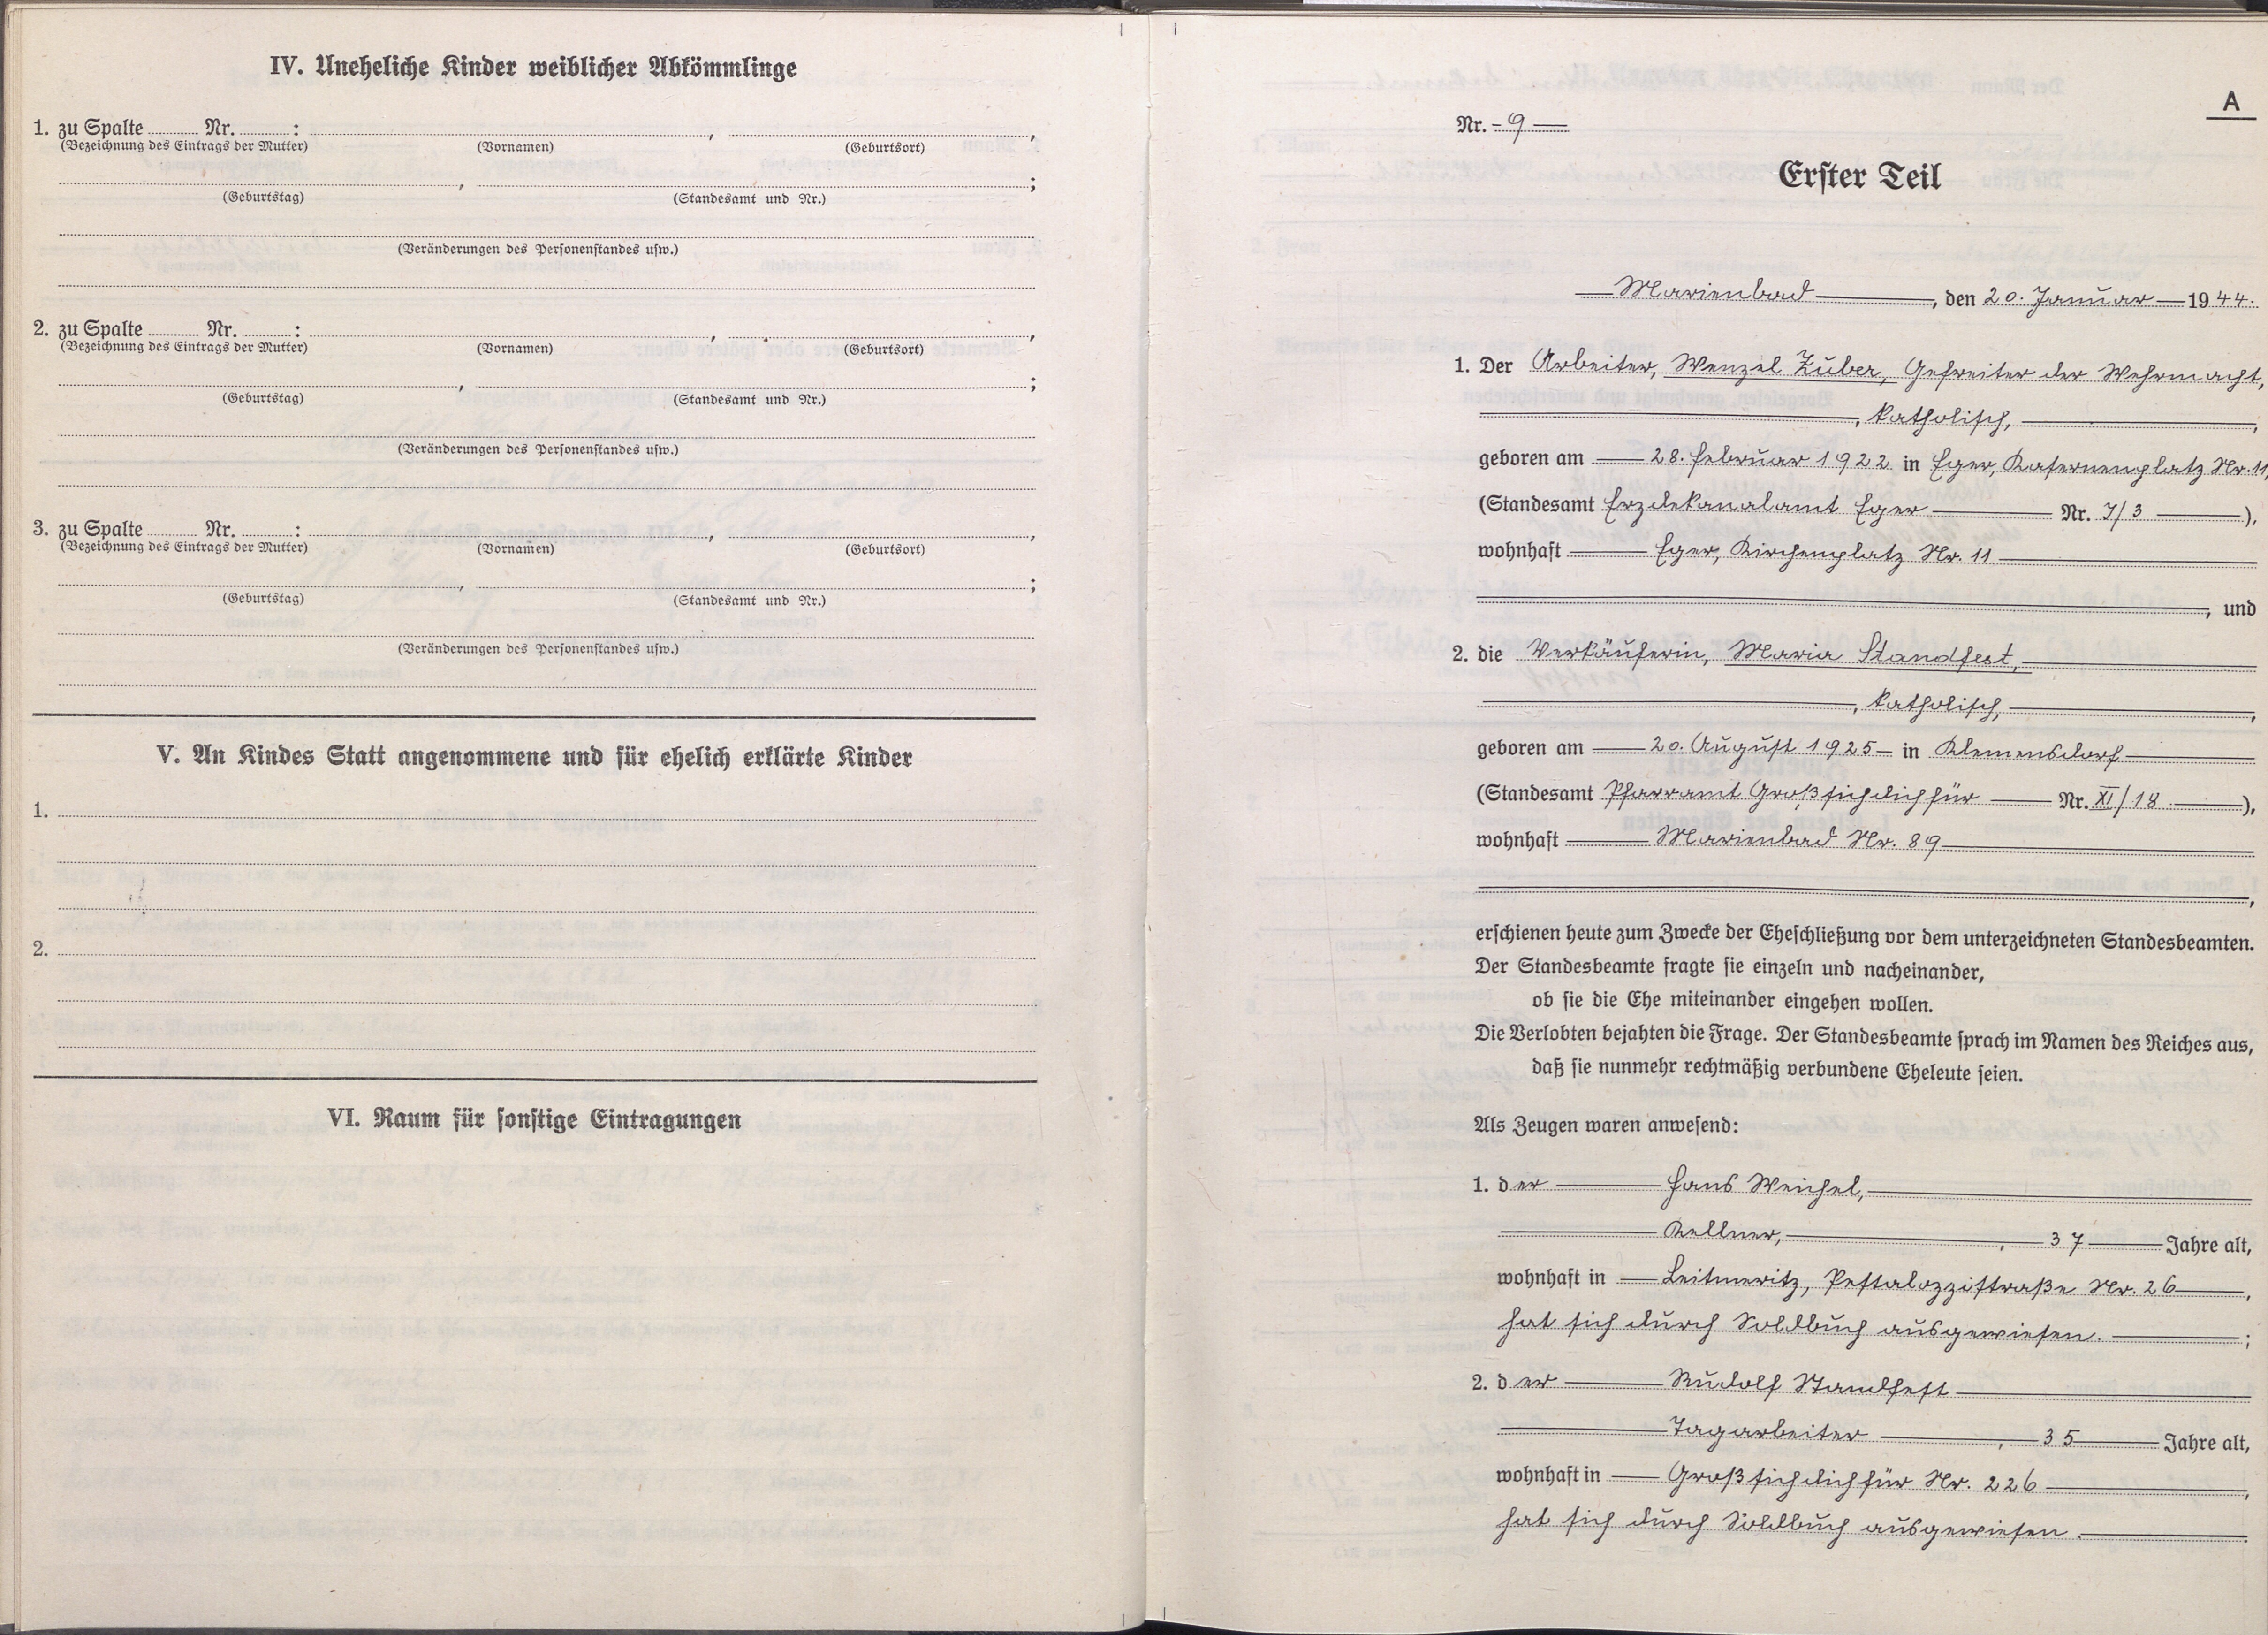 IV. Uneheliche Kinder weiblicher Abkömmlinge
1. zu Spalte ........ Nr. ........ : , ,
(Bezeichnung des Eintrags der Mutter) (Vornamen) (Geburtsort)
, ;
(Geburtstag) (Standesamt und Nr.)
(Veränderungen des Personenstandes usw.)
2. zu Spalte ........ Nr. ........ : , ,
(Bezeichnung des Eintrags der Mutter) (Vornamen) (Geburtsort)
, ;
(Geburtstag) (Standesamt und Nr.)
(Veränderungen des Personenstandes usw.)
3. zu Spalte ........ Nr. ........ : , ,
(Bezeichnung des Eintrags der Mutter) (Vornamen) (Geburtsort)
, ;
(Geburtstag) (Standesamt und Nr.)
(Veränderungen des Personenstandes usw.)
V. An Kindes Statt angenommene und für ehelich erklärte Kinder
1.
2.
VI. Raum für sonstige Eintragungen
A
Nr. - 9 —
Erster Teil
Marienbad, den 20. Januar 1944.
1. Der Arbeiter, Wenzel Zuber, Gefreiter der Wehrmacht,
, katholisch, ,
geboren am 28. Februar 1922 in Eger, Kasernenplatz Nr. 11,
(Standesamt Erzdekanalamt Eger Nr. 7/3 ),
wohnhaft Eger, Kirchenplatz Nr. 11
, und
2. die Verkäuferin, Maria Standfest,
, katholisch, ,
geboren am 20. August 1925 in Klemensdorf
(Standesamt Pfarramt Großsichdichfür Nr. XI/18 ),
wohnhaft Marienbad Nr. 89
,
erschienen heute zum Zwecke der Eheschließung vor dem unterzeichneten Standesbeamten.
Der Standesbeamte fragte sie einzeln und nacheinander,
ob sie die Ehe miteinander eingehen wollen.
Die Verlobten bejahten die Frage. Der Standesbeamte sprach im Namen des Reiches aus,
daß sie nunmehr rechtmäßig verbundene Eheleute seien.
Als Zeugen waren anwesend:
1. der Hans Weichel,
Kellner, , 37 Jahre alt,
wohnhaft in Leitmeritz, Pestalozzistraße Nr. 26 ,
hat sich durch Soldbuch ausgewiesen. ;
2. der Rudolf Standfest
Tagarbeiter , 35 Jahre alt,
wohnhaft in Großsichdichfür Nr. 226 ,
hat sich durch Soldbuch ausgewiesen.